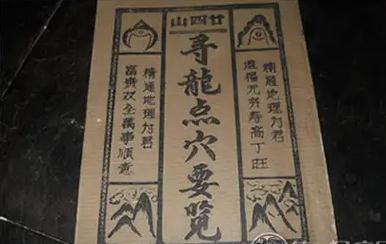 廿四山
精通地理为君
造福无穷寿高丁旺
寻龍点穴要览
精通地理为君
富贵双全萬事順意